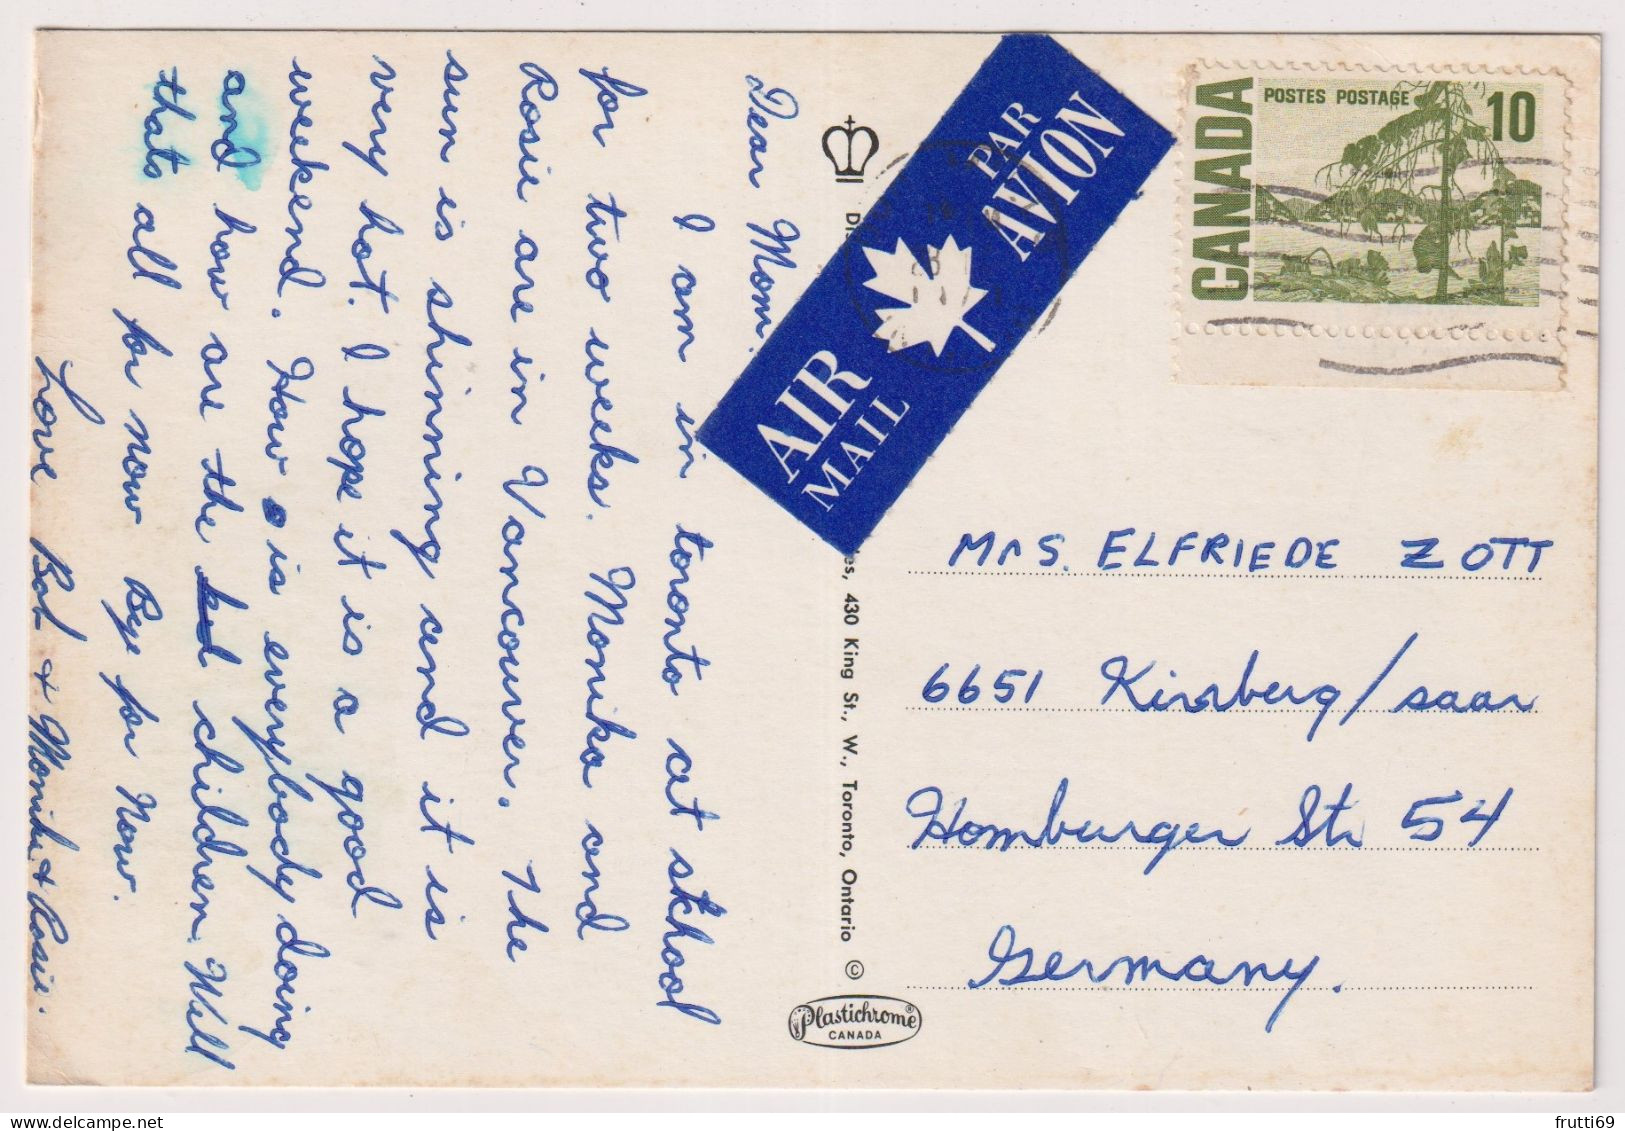 Dear Mom.
I am in toronto at skhool
for two weeks. Monika and
Rosie are in Vancouver. The
sun is shinning and it is
very hot. I hope it is a good
weekend. How is everybody doing
and how are the children. Well
thats all for now Bye for Now.
Love Bob + Monika + Rosie.
AIR
MAIL
PAR
AVION
es, 430 King St., W., Toronto, Ontario ©
Plastichrome®
CANADA
CANADA
POSTES POSTAGE 10
MRS. ELFRIEDE ZOTT
6651 Kirsberg/saar
Homburger Str 54
Germany.
frutti69